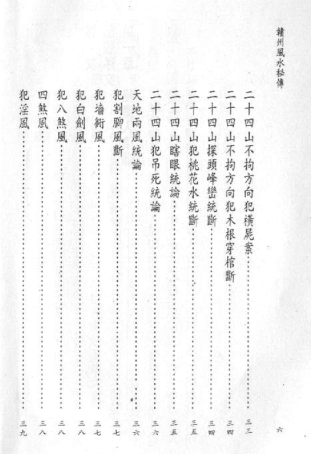 贛州風水秘傳
六
二十四山不拘方向犯橫屍案……三三
二十四山不拘方向犯木根穿棺斷……三四
二十四山探頭峰巒統斷……三四
二十四山犯桃花水統斷……三五
二十四山瞎眼統論……三五
二十四山犯吊死統論……三六
天地兩風統論……三六
犯割腳風斷……三七
犯墻衖風……三七
犯白劍風……三八
犯八煞風……三八
四煞風……三八
犯淫風……三九